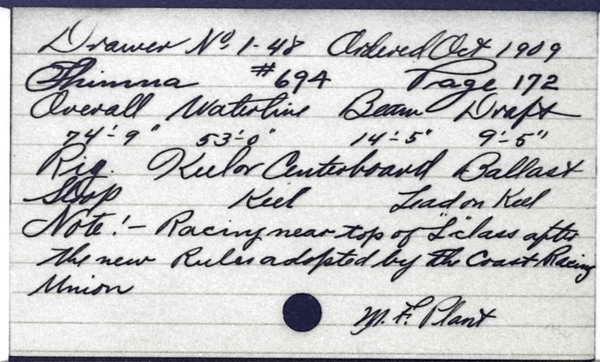 Drawer No. 1-48 Ordered Oct 1909
Shimna #694 Page 172
Overall Waterline Beam Draft
74'-9" 53'-0" 14'-5" 9'-5"
Rig. Keel or Centerboard Ballast
Sloop Keel Lead on Keel
Note:- Racing near top of "L" class after
the new Rules adopted by the Coast Racing
Union
M. F. Plant